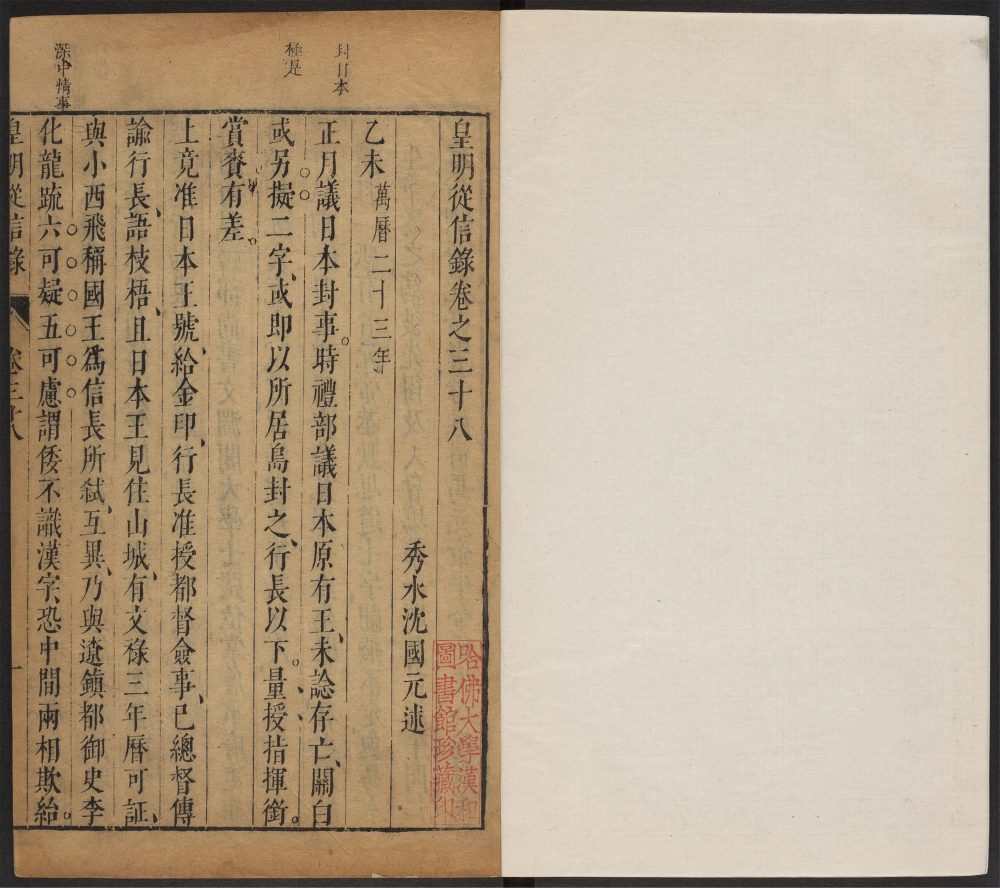 封日本
極是
深中情事
皇明從信錄卷之三十八
秀水沈國元述
乙未萬曆二十三年
正月議日本封事。時禮部議日本原有王、未諗存亡、關白
或另擬二字、或即以所居島封之、行長以下。量授指揮銜。
賞賚有差。
上竟准日本王號、給金印、行長准授都督僉事、已總督傳
諭行長、語枝梧、且日本王見住山城、有文祿三年曆可証、
與小西飛稱國王爲信長所弑、互異、乃與遼鎮都御史李
化龍疏六可疑五可慮謂倭不識漢字、恐中間兩相欺紿。
皇明從信錄 卷三十八 一
哈佛大學漢和
圖書館珍藏印